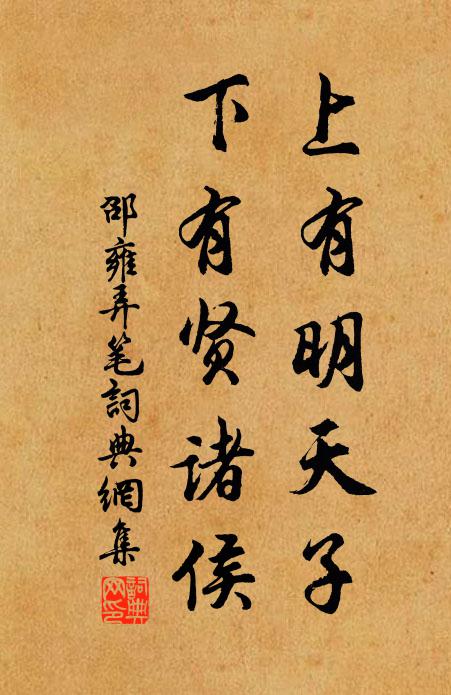 上有明天子
下有贤诸侯
邵雍弄笔詞典網集
詞典网印